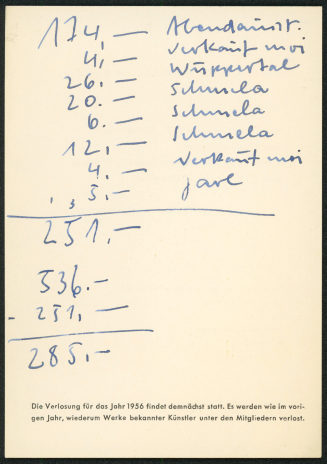 174,— Abendaust.
4,— verkauf moi
26.— Wuppertal
20.— Schmela
6.— Schmela
12,— Schmela
4.— verkauf moi
5.— Jarl
251.—
536.—
- 251,—
285.—
Die Verlosung für das Jahr 1956 findet demnächst statt. Es werden wie im vori-
gen Jahr, wiederum Werke bekannter Künstler unter den Mitgliedern verlost.